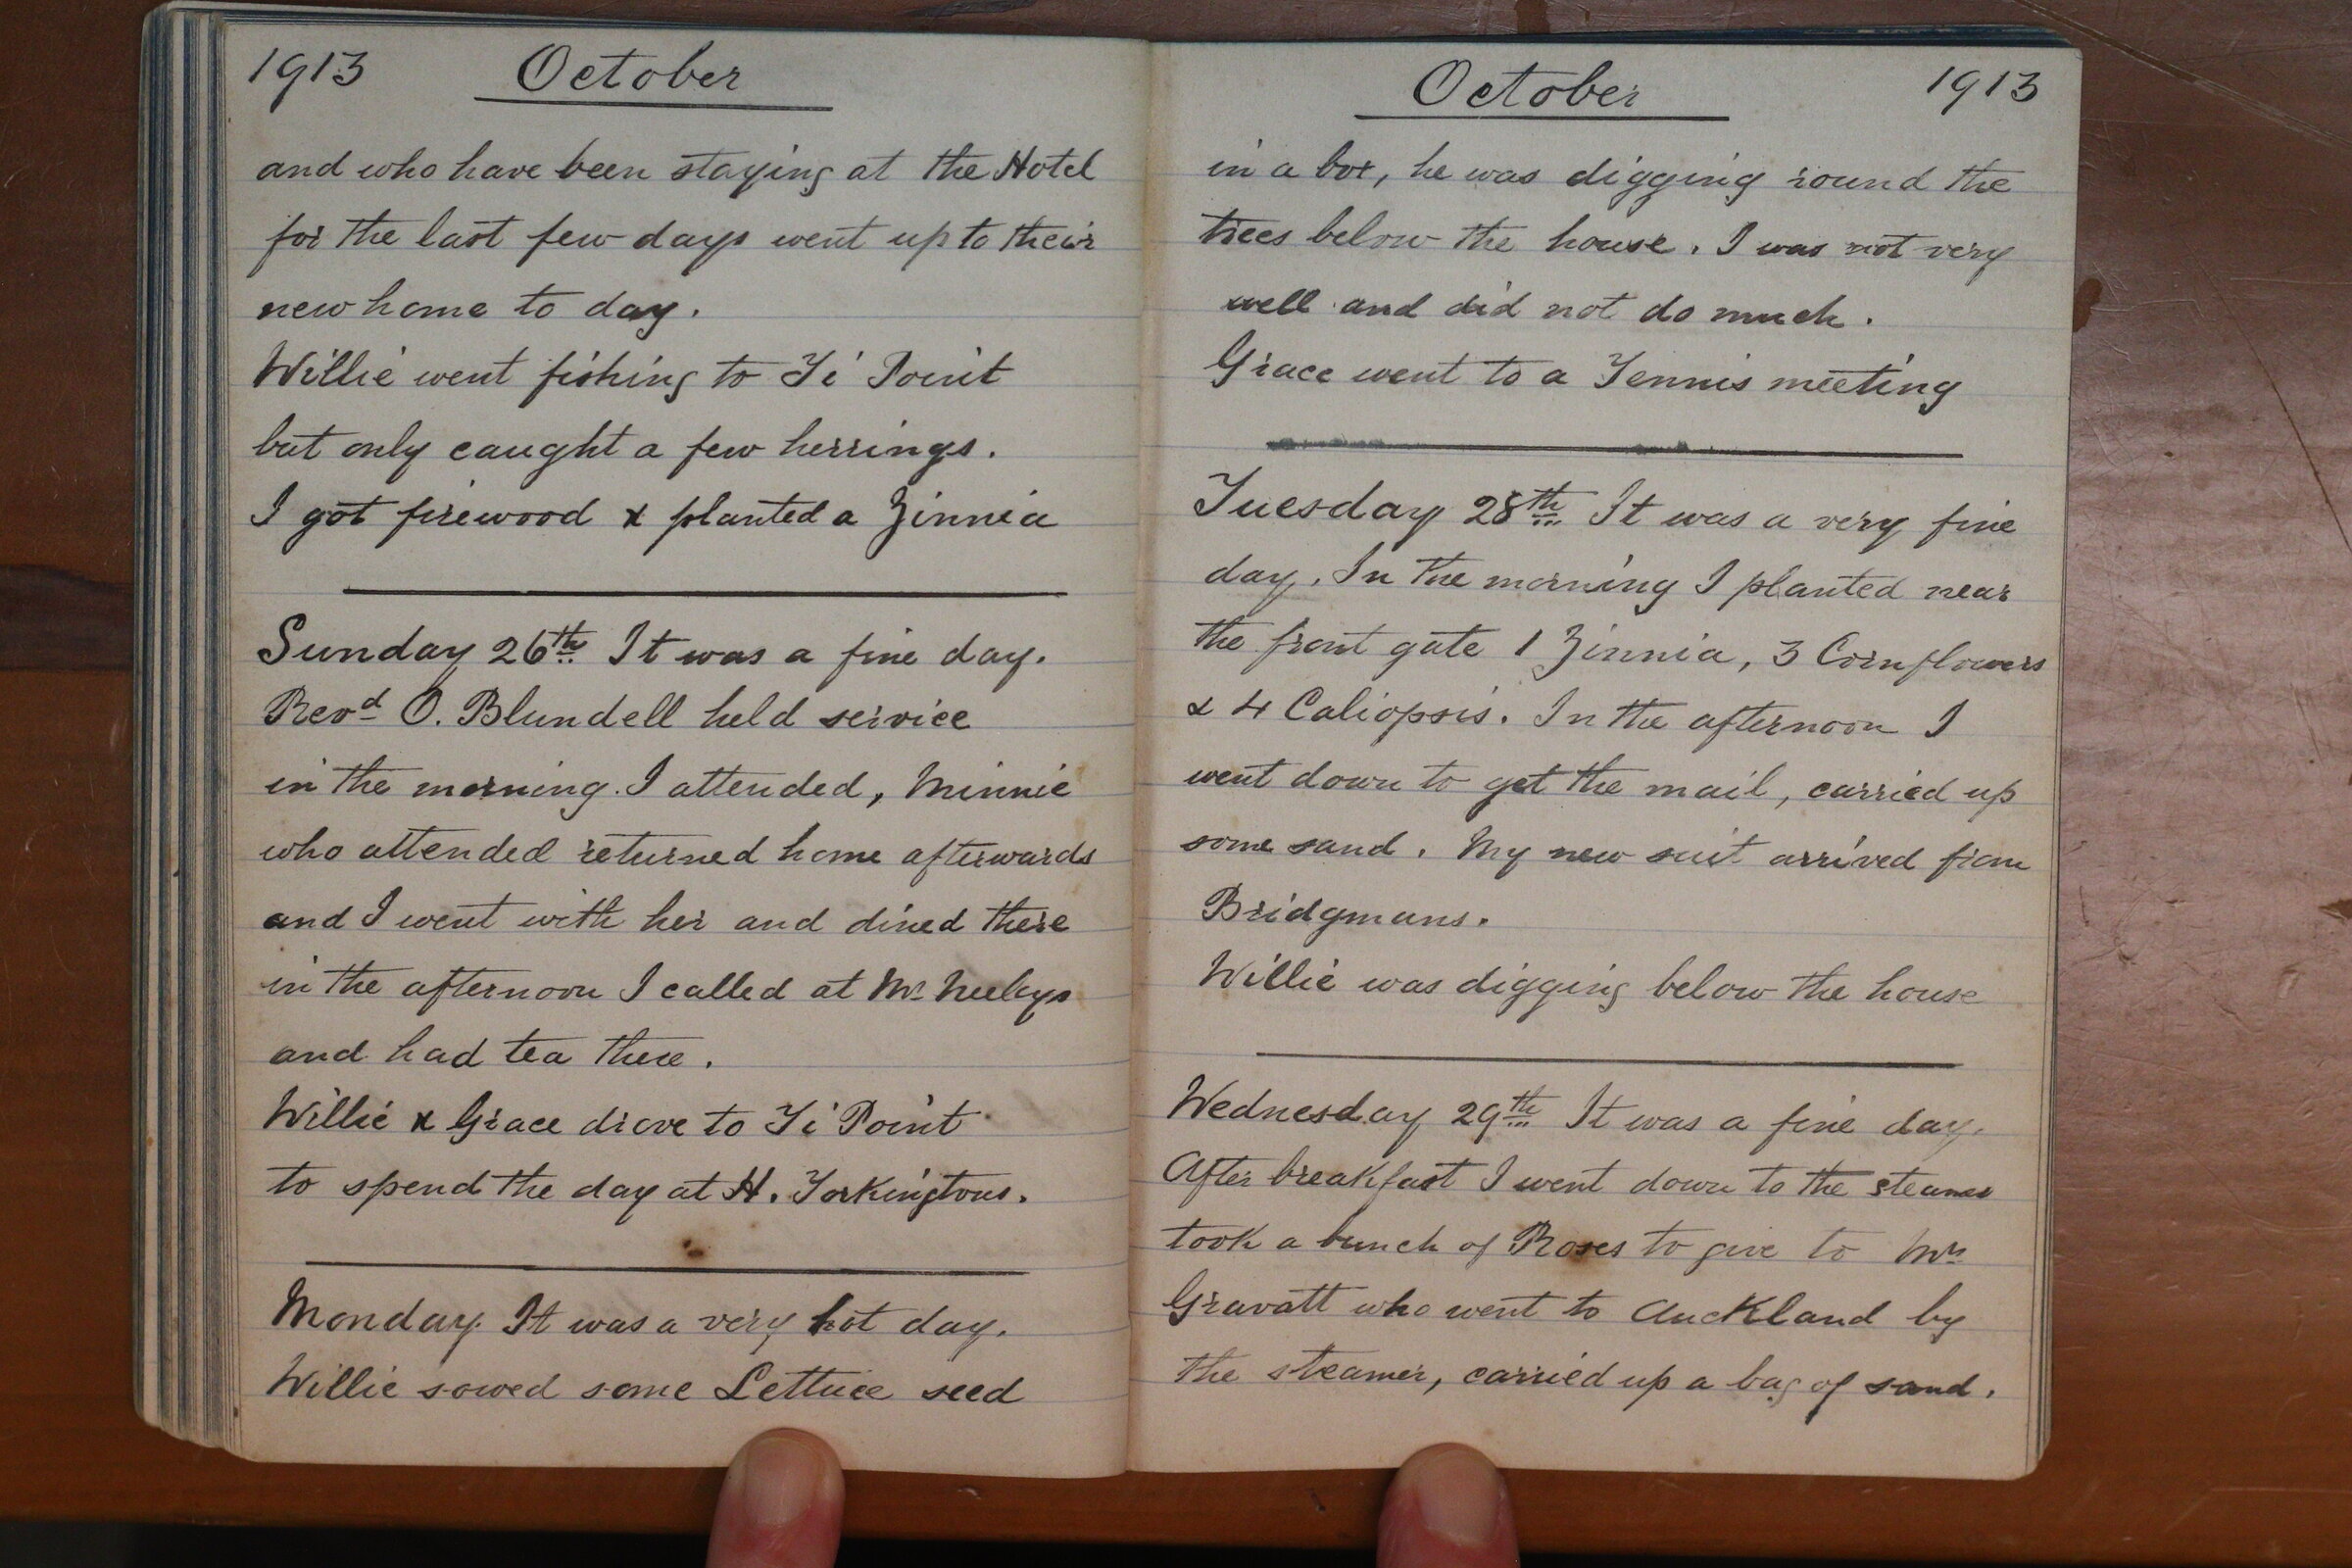 1913 October
and who have been staying at the Hotel
for the last few days went up to their
new home to day.
Willie went fishing to Ti Point
but only caught a few herrings.
I got firewood & planted a Zinnia
Sunday 26th It was a fine day.
Revd O. Blundell held service
in the morning. I attended, Minnie
who attended returned home afterwards
and I went with her and dined there
in the afternoon I called at Mr Neelys
and had tea there.
Willie & Grace drove to Ti Point
to spend the day at H. Torkingtons.
Monday. It was a very hot day.
Willie sowed some Lettuce seed
October 1913
in a box, he was digging round the
trees below the house. I was not very
well and did not do much.
Grace went to a Tennis meeting
Tuesday 28th It was a very fine
day. In the morning I planted near
the front gate 1 Zinnia, 3 Cornflowers
& 4 Caliopsis. In the afternoon I
went down to get the mail, carried up
some sand. My new suit arrived from
Bridgmans.
Willie was digging below the house
Wednesday 29th It was a fine day.
After breakfast I went down to the steamer
took a bunch of Roses to give to Mrs
Gravatt who went to Auckland by
the steamer, carried up a bag of sand.